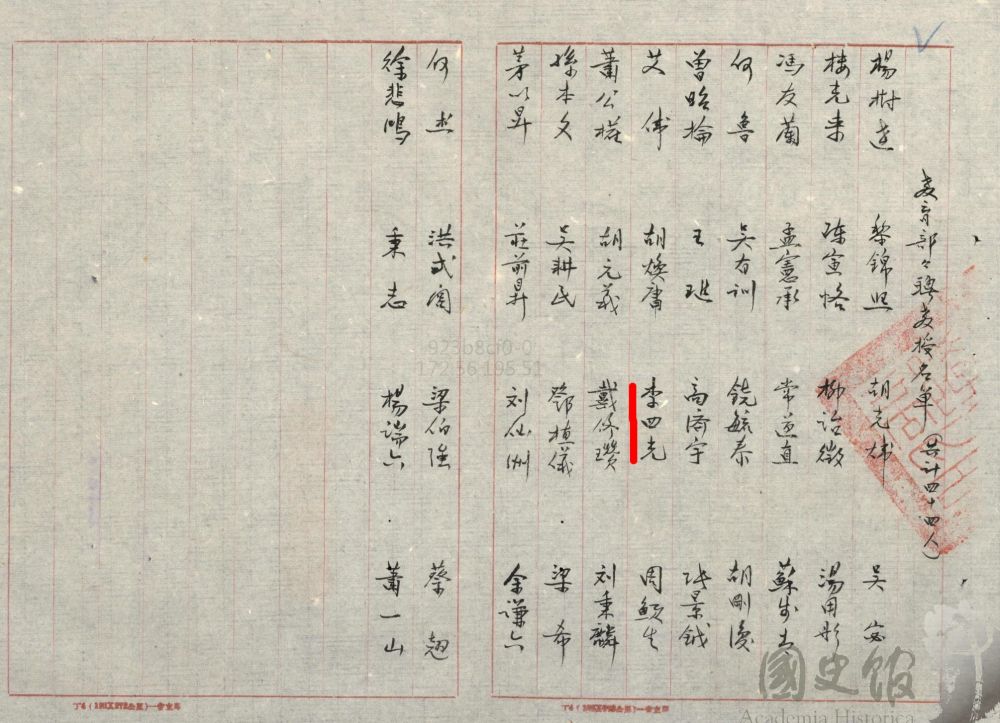 教育部々聘教授名單(共計四十四人)
楊樹達 黎錦熙 胡光煒 吳宓
樓光來 陳寅恪 柳詒徵 湯用彤
馮友蘭 孟憲承 常道直 蘇步青
何魯 吳有訓 饒毓泰 胡剛復
曾昭掄 王璡 高濟宇 張景鉞
艾偉 胡煥庸 李四光 周鯁生
蕭公權 胡元義 戴修瓚 刘秉麟
孫本文 吳耕民 鄧植儀 梁希
茅以昇 莊前鼎 刘仙洲 余謙六
何杰 洪式閭 梁伯強 蔡翹
徐悲鴻 秉志 楊端六 蕭一山
923b8cf0-0
172.56.195.51
國史館
Academia Historica